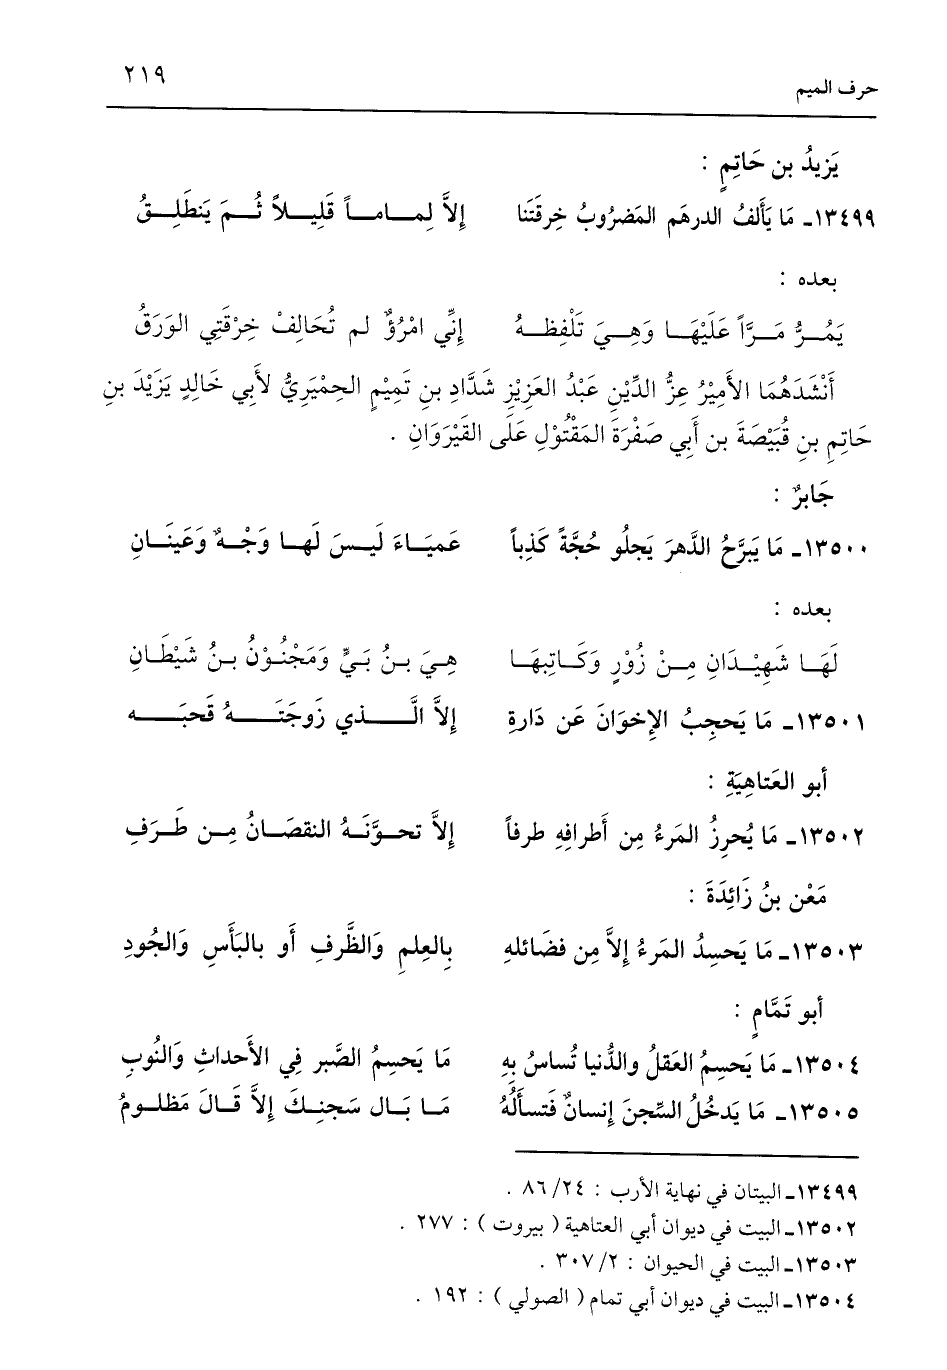 حرف الميم ٢١٩
يَزِيدُ بن حَاتِمٍ :
١٣٤٩٩ـ مَا يَأَلفُ الدرهَم المَضرُوبُ خِرقَتَنا إِلاَّ لِمـامـاً قَلِيـلاً ثُـمَ يَنطَلِـقُ
بعده :
يَمُـرُّ مَـرَّاً عَلَيْهَـا وَهِـيَ تَلْفِظـهُ إِنِّي امْرُؤٌ لم تُحَالِفْ خِرْقَتِي الوَرَقُ
أَنْشَدَهُمَا الأَمِيْرُ عِزُّ الدِّيْنِ عَبْدُ العَزِيْزِ شَدَّادِ بن تَمِيْمٍ الحِمْيَرِيُّ لأَبي خَالِدٍ يَزَيْدَ بنِ
حَاتِمِ بنِ قُبَيْصَةَ بن أَبي صَفْرَةَ المَقْتُوْلِ عَلَى القَيْرَوَانِ .
جَابرٌ :
١٣٥٠٠ـ مَا يَبرَّحُ الدَّهرَ يَجلُو حُجَّةً كَذِباً عَميَـاءَ لَيـسَ لَهـا وَجْـهٌ وَعَينَـانِ
بعده :
لَهَـا شَهِيْـدَانِ مِـنْ زُوْرٍ وَكَـاتِبهَـا هِيَ بـنُ بَيٍّ وَمَجْنُـوْنُ بـنُ شَيْطَـانِ
١٣٥٠١ـ مَا يَحجِبُ الإِخوَانَ عَن دَارِةِ إِلاَّ الَّـــذي زَوجَتَـــهُ قَحبَـــه
أبو العَتاهِيَةِ :
١٣٥٠٢ـ مَا يُحرِزُ المَرءُ مِن أَطرافِهِ طرفاً إِلاَّ تحـوَّنَـهُ النقصَـانُ مِـن طَـرَفِ
مَعْن بنُ زَائِدَةَ :
١٣٥٠٣ـ مَا يَحسِدُ المَرءُ إِلاَّ مِن فضَائلهِ بِالعِلمِ وَالظَّرفِ أَو بالبَأَسِ وَالجُودِ
أبو تَمَّامٍ :
١٣٥٠٤ـ مَا يَحسِمُ العَقلُ والدُّنيا تُساسُ بِهِ مَا يَحسِمُ الصَّبر فِي الأَحداثِ وَالنُوبِ
١٣٥٠٥ـ مَا يَدخُلُ السِّجنَ إِنسانٌ فَتسأَلُهُ مَـا بَـال سَجنِـكَ إِلاَّ قَـالَ مَظلـومُ
١٣٤٩٩ـ البيتان في نهاية الأرب : ٢٤/ ٨٦ .
١٣٥٠٢ـ البيت في ديوان أبي العتاهية ( بيروت ) : ٢٧٧ .
١٣٥٠٣ـ البيت في الحيوان : ٢/ ٣٠٧ .
١٣٥٠٤ـ البيت في ديوان أبي تمام ( الصولي ) : ١٩٢ .